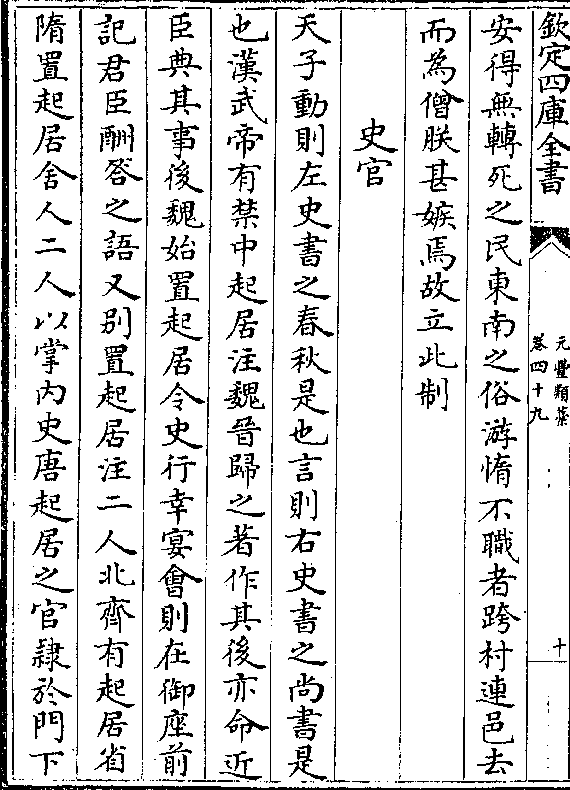 欽定四庫全書
元豐類藁
卷四十九
十
安得無轉死之民東南之俗游惰不職者跨村連邑去
而為僧朕甚嫉焉故立此制
史官
天子動則左史書之春秋是也言則右史書之尚書是
也漢武帝有禁中起居注魏晉歸之著作其後亦命近
臣典其事後魏始置起居令史行幸宴會則在御座前
記君臣酬答之語又別置起居注二人北齊有起居省
隋置起居舍人二人以掌内史唐起居之官隷於門下